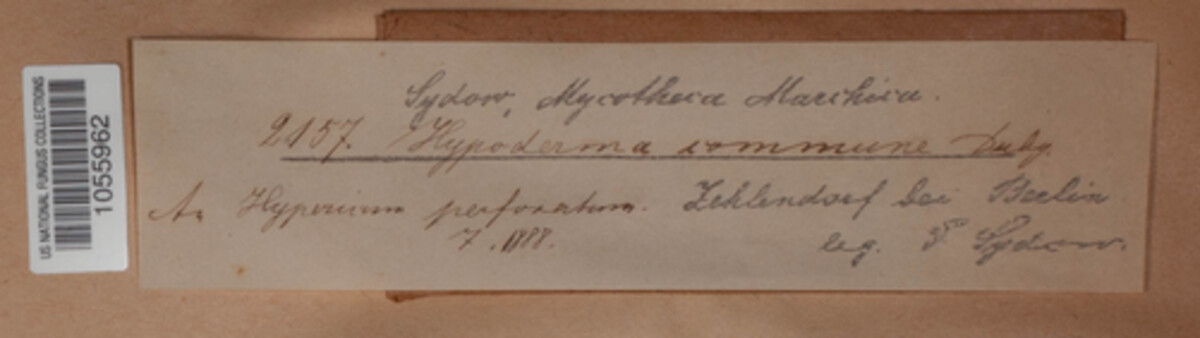 US NATIONAL FUNGUS COLLECTIONS
1055962
Sydow, Mycotheca Marchica.
2157. Hypoderma commune Duby.
An Hypericum perforatum. Zehlendorf bei Berlin
7. 1888. leg. P. Sydow.